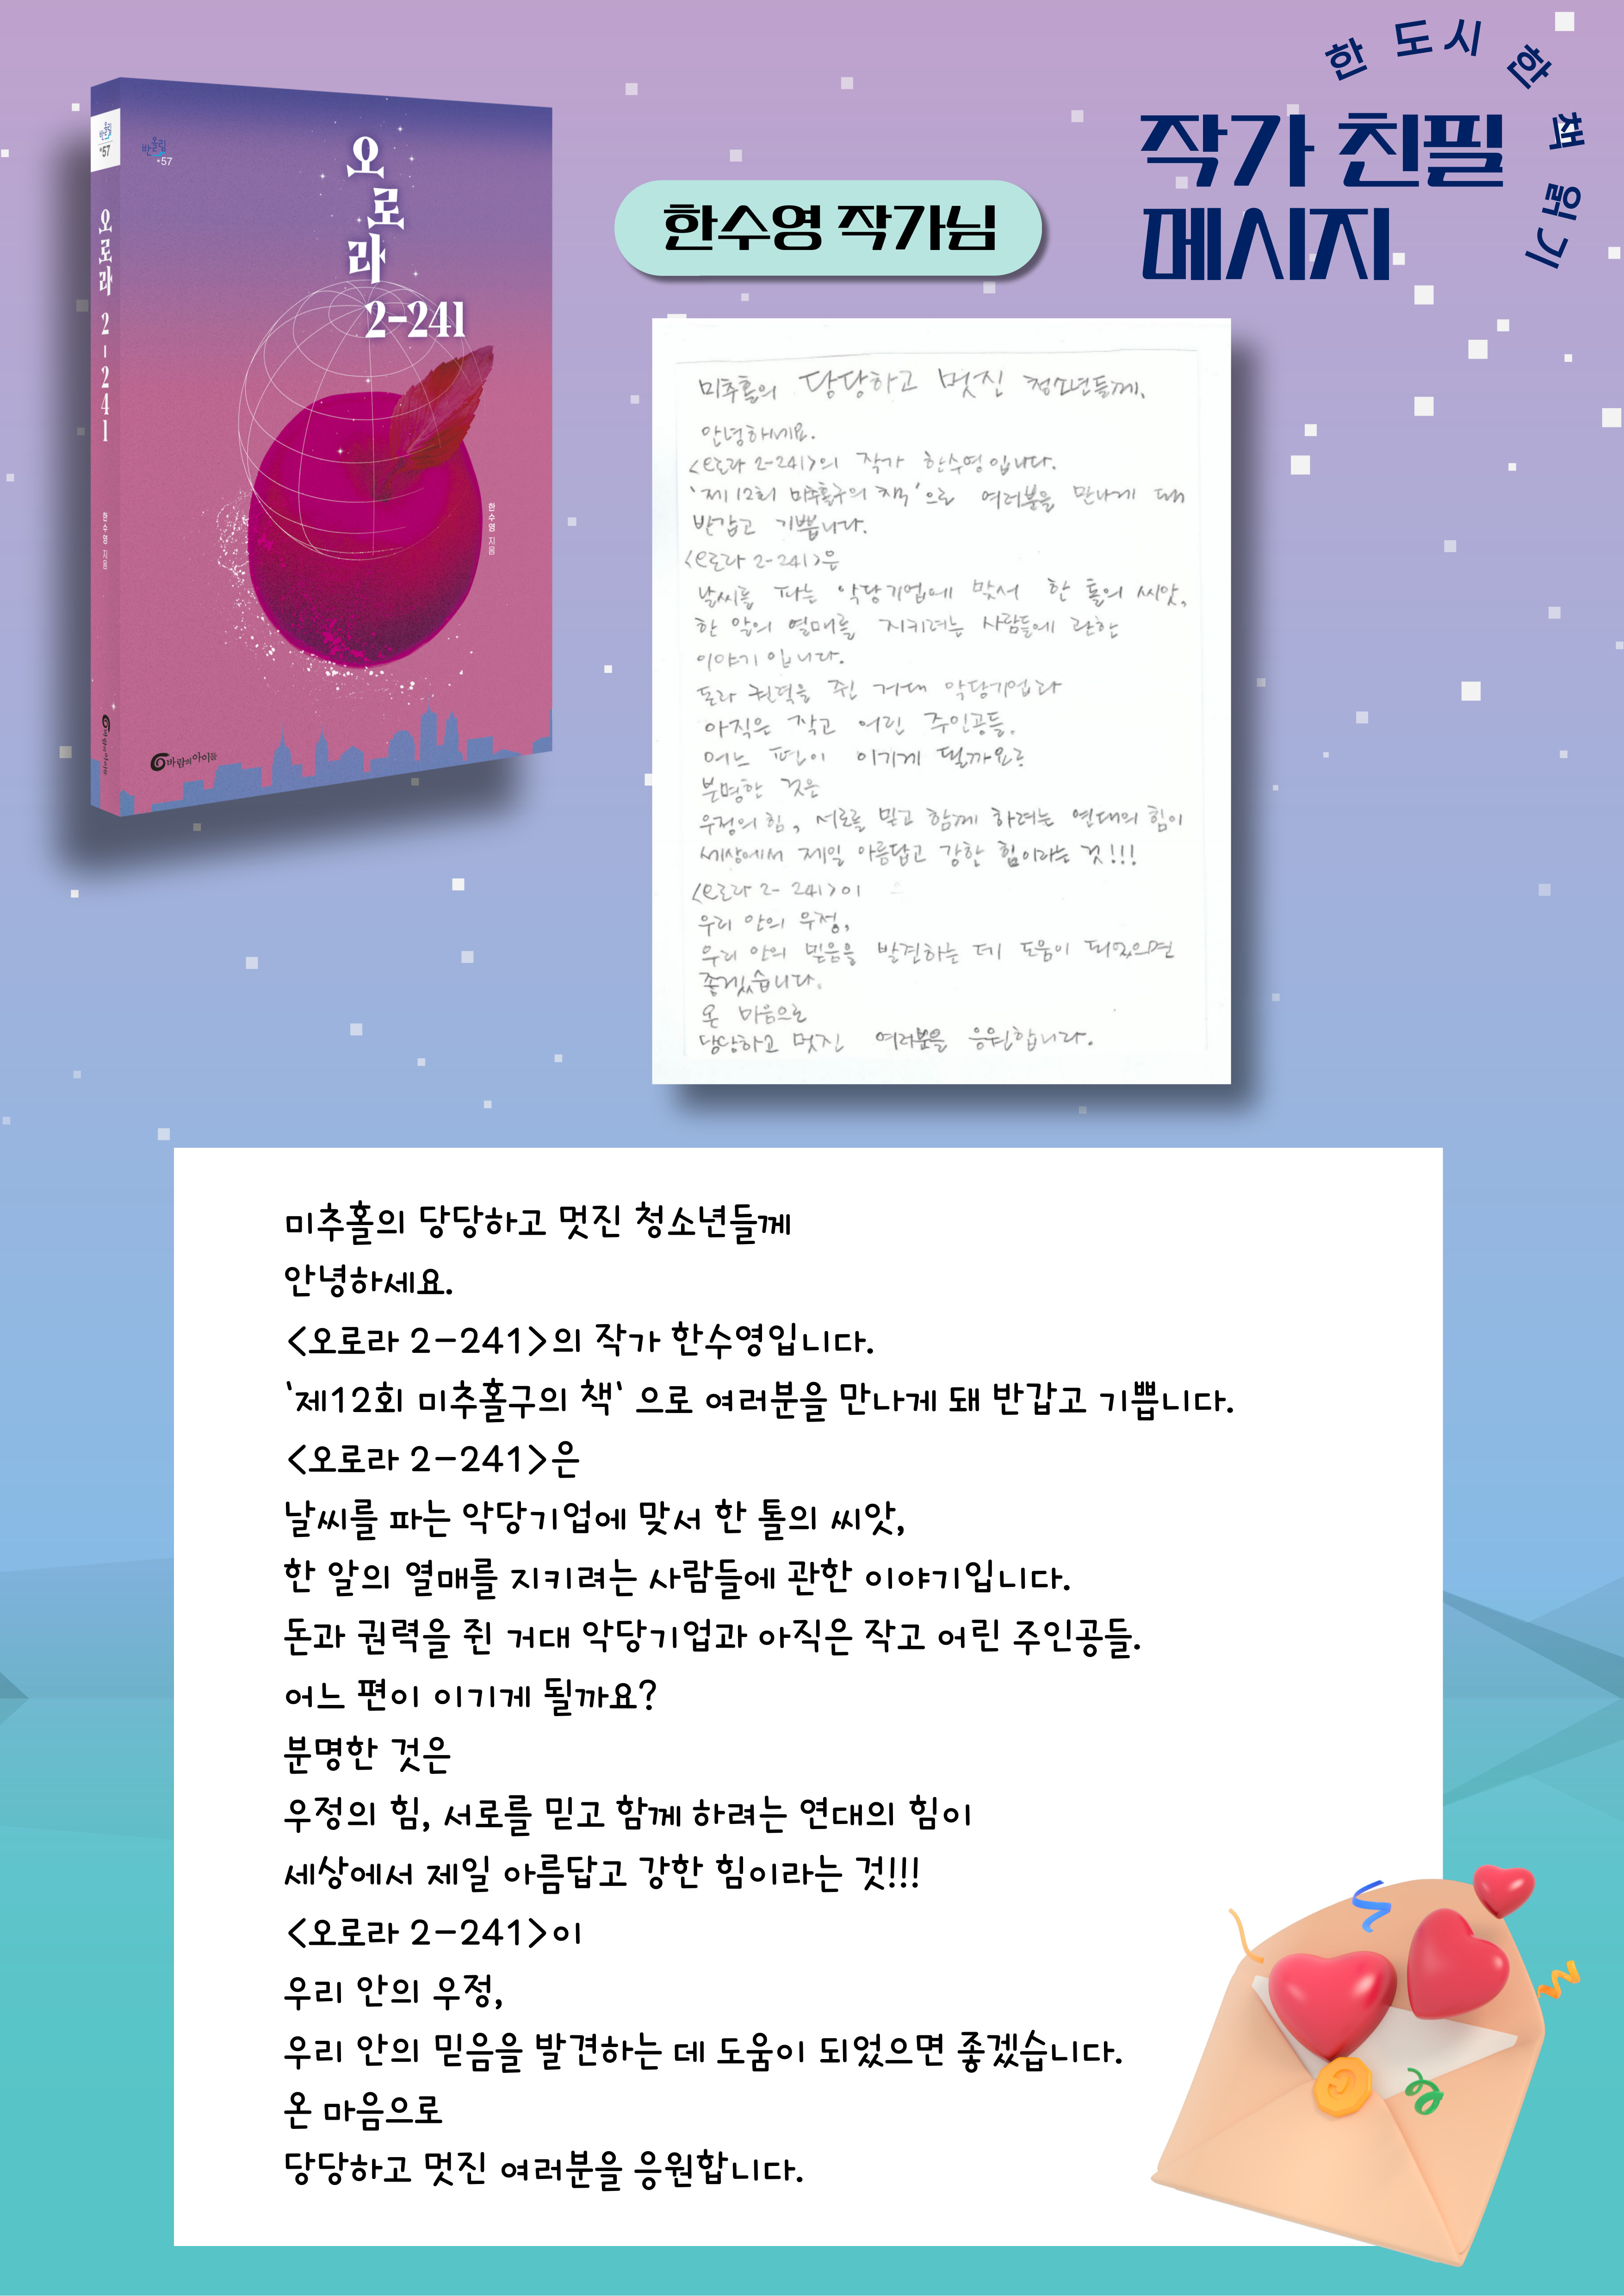 한 도시 한 책 읽기
작가 친필
메시지
한수영 작가님
반올림
*57
오로라
2-241
한수영 지음
바람의아이들
반올림
*57
오로라 2-241
한수영 지음
바람의아이들
미추홀의 당당하고 멋진 청소년들께,
안녕하세요.
<오로라 2-241>의 작가 한수영입니다.
'제12회 미추홀구의 책'으로 여러분을 만나게 돼
반갑고 기쁩니다.
<오로라 2-241>은
날씨를 파는 악당기업에 맞서 한 톨의 씨앗,
한 알의 열매를 지키려는 사람들에 관한
이야기입니다.
돈과 권력을 쥔 거대 악당기업과
아직은 작고 어린 주인공들.
어느 편이 이기게 될까요?
분명한 것은
우정의 힘, 서로를 믿고 함께 하려는 연대의 힘이
세상에서 제일 아름답고 강한 힘이라는 것!!!
<오로라 2-241>이
우리 안의 우정,
우리 안의 믿음을 발견하는 데 도움이 되었으면
좋겠습니다.
온 마음으로
당당하고 멋진 여러분을 응원합니다.
미추홀의 당당하고 멋진 청소년들께
안녕하세요.
<오로라 2-241>의 작가 한수영입니다.
'제12회 미추홀구의 책' 으로 여러분을 만나게 돼 반갑고 기쁩니다.
<오로라 2-241>은
날씨를 파는 악당기업에 맞서 한 톨의 씨앗,
한 알의 열매를 지키려는 사람들에 관한 이야기입니다.
돈과 권력을 쥔 거대 악당기업과 아직은 작고 어린 주인공들.
어느 편이 이기게 될까요?
분명한 것은
우정의 힘, 서로를 믿고 함께 하려는 연대의 힘이
세상에서 제일 아름답고 강한 힘이라는 것!!!
<오로라 2-241>이
우리 안의 우정,
우리 안의 믿음을 발견하는 데 도움이 되었으면 좋겠습니다.
온 마음으로
당당하고 멋진 여러분을 응원합니다.